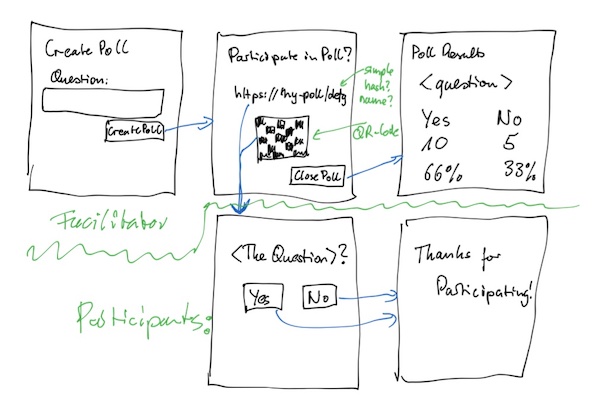 Create Poll
Question:
Create Poll
Participate in Poll?
https://my-poll/defg
simple
hash?
name?
QR-Code
Close Poll
Poll Results
<question>
Yes No
10 5
66% 33%
Facilitator
Participants:
<The Question>?
Yes No
Thanks for
Participating!